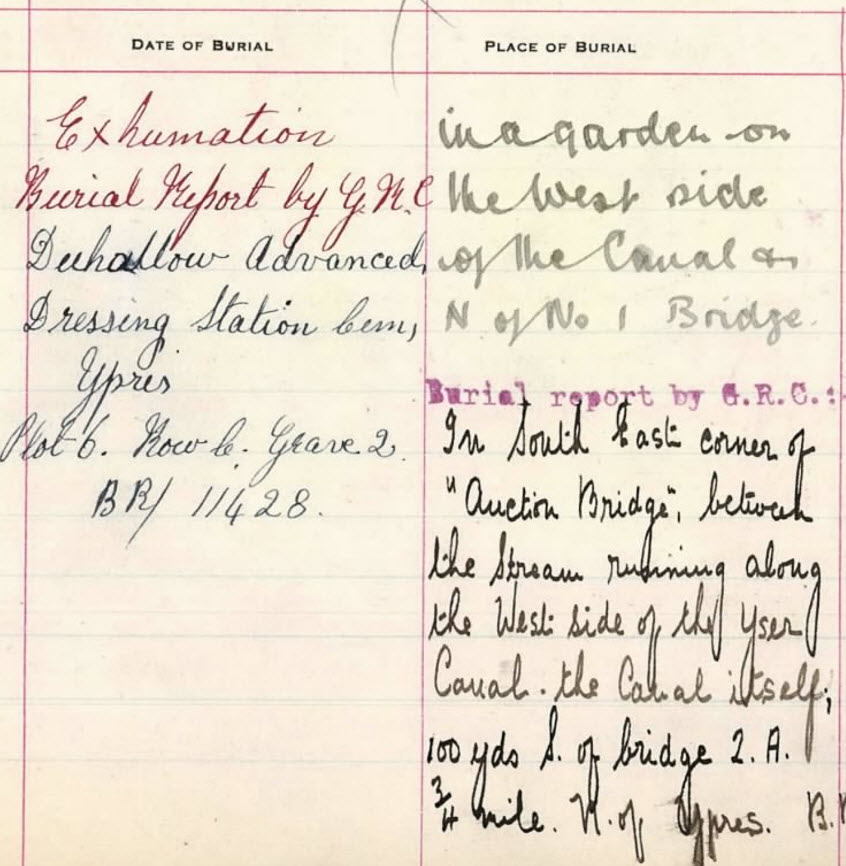 DATE OF BURIAL
Exhumation
Burial Report by G.R.C
Duhallow Advanced,
Dressing Station Cem,
Ypres
Plot 6. Row C. Grave 2.
BR/ 11428.
PLACE OF BURIAL
in a garden on
the West side
of the Canal &
N of No 1 Bridge.
Burial report by G.R.C.:-
In South East corner of
"Auction Bridge", between
the Stream running along
the West side of the Yser
Canal. the Canal itself;
100 yds S. of bridge 2. A.
3/4 mile. N. of Ypres. B.